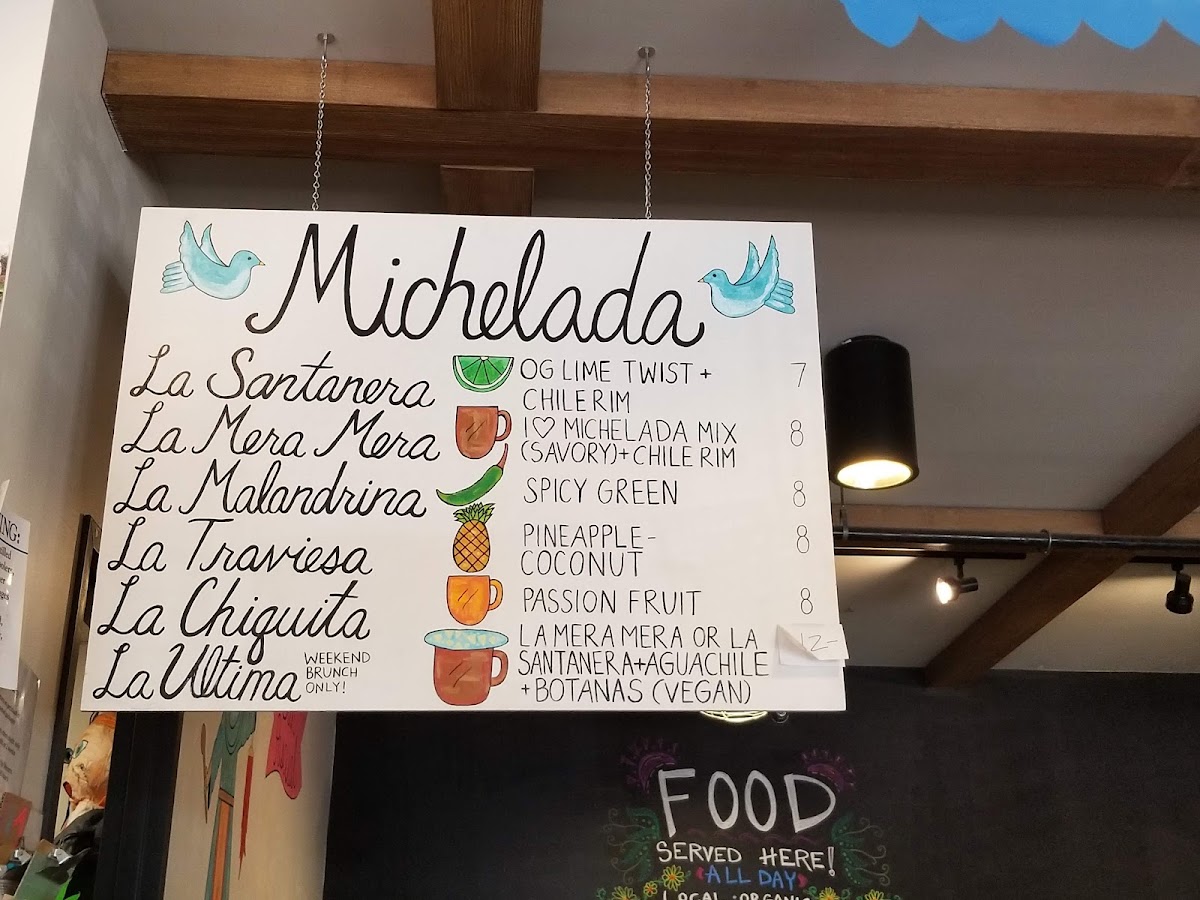 Michelada
La Santanera OG LIME TWIST + 7
CHILE RIM
La Mera Mera I♡ MICHELADA MIX 8
(SAVORY)+CHILE RIM
La Malandrina SPICY GREEN 8
La Traviesa PINEAPPLE- 8
COCONUT
La Chiquita PASSION FRUIT 8
La Ultima WEEKEND
BRUNCH
ONLY!
LA MERA MERA OR LA 12-
SANTANERA+AGUACHILE
+ BOTANAS (VEGAN)
FOOD
SERVED HERE!
ALL DAY
LOCAL ORGANIC